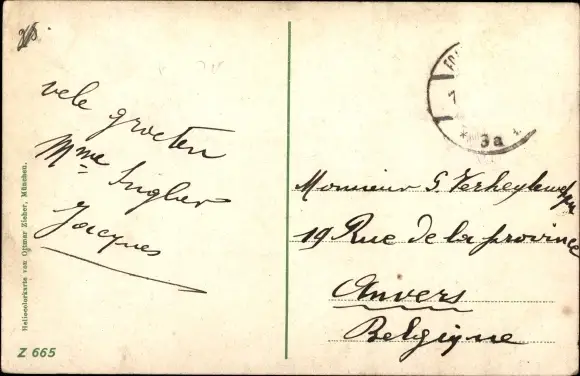 vele groeten
Mme Singher
Jacques
Heliocolorkarte von Ottmar Zieher, München.
Z 665
3a
Monsieur G. Verheylewegen
19 Rue de la province
Anvers
Belgique